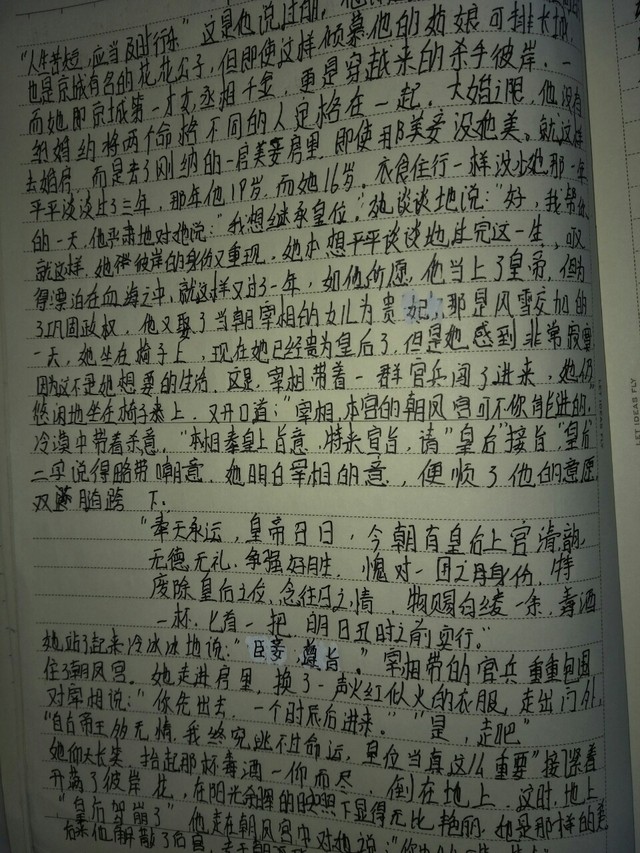 "人生苦短，应当及时行乐"这是他说过的，他
也是京城有名的花花公子，但即使这样倾慕他的姑娘可排长城，
而她即京城第一才女，丞相千金，更是穿越来的杀手彼岸，一
纸婚约将两个命格不同的人定格在一起。大婚之限，他没有
去婚房，而是去了刚纳的一房美妾房里，即使那美妾没她美。就这样
平平淡淡过了三年，那年他19岁，而她16岁。衣食住行一样没少她那一年
的一天，他严肃地对她说："我想继承皇位。"她谈谈地说："好，我帮你
就这样，她彼岸的身份又重现，她本想平平谈谈地过完这一生，
得漂泊在血海之中，就这样又过了一年，如他所愿，他当上了皇帝，但为
了巩固政权，他又娶了当朝宰相的女儿为贵妃，那是风雪交加的
一天，她坐在椅子上，现在她已经贵为皇后了，但是她感到非常寂寞
因为这不是她想要的生活。这是，宰相带着一群官兵闯了进来，她仍
悠闲地坐在椅子上，又开口道："宰相，本宫的朝凤宫可不你能进的，
冷漠中带着杀意。"本相奉皇上旨意，特来宣旨，请"皇后"接旨，"皇后
二字说得略带嘲意，她明白宰相的意，便顺了他的意愿
双腿 下、
"奉天永运，皇帝召曰，今朝有皇后上官清韵，
无德无礼，争强好胜，愧对一国之母身份，特
废除皇后之位，念往日之情，物赐白绫一条，毒酒
一杯，匕首一把，明日丑时之前实行。"
她站了起来冷冰冰地说："臣妾 遵旨。"宰相带的官兵重重包围
住了朝凤宫。她走进房里，换了一声火红似火的衣服，走出门外，
对宰相说："你先出去，一个时辰后进来。""是，走吧"
"自古帝王多无情，我终究逃不过命运，皇位当真这么重要"接着
她仰天长笑，抬起那杯毒酒一仰而尽，倒在地上，这时，地上
开满了彼岸花，在阳光的映照下显得无比艳丽，她是那样的美
"皇后驾崩了"他走在朝凤宫中对她说："
后来他解散了后宫，